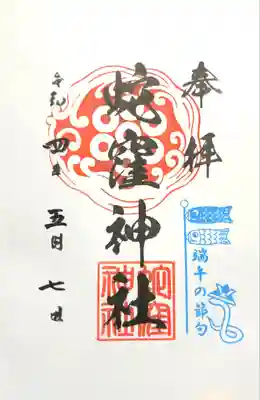 奉拝
蛇窪神社
蛇窪神社
端午の節句
令和四年
五月七日